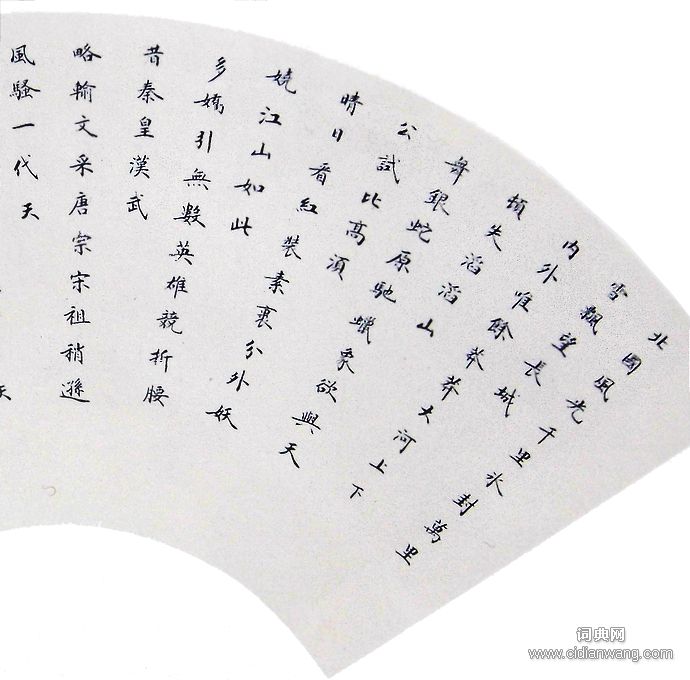 北國風光千里冰封萬里
雪飄望長城
内外唯餘莽莽大河上下
頓失滔滔山
舞銀蛇原馳蠟象欲與天
公試比高須
晴日看紅裝素裹分外妖
嬈江山如此
多嬌引無數英雄競折腰
昔秦皇漢武
略輸文采唐宗宋祖稍遜
風騷一代天
词典网
www.cidianwang.com